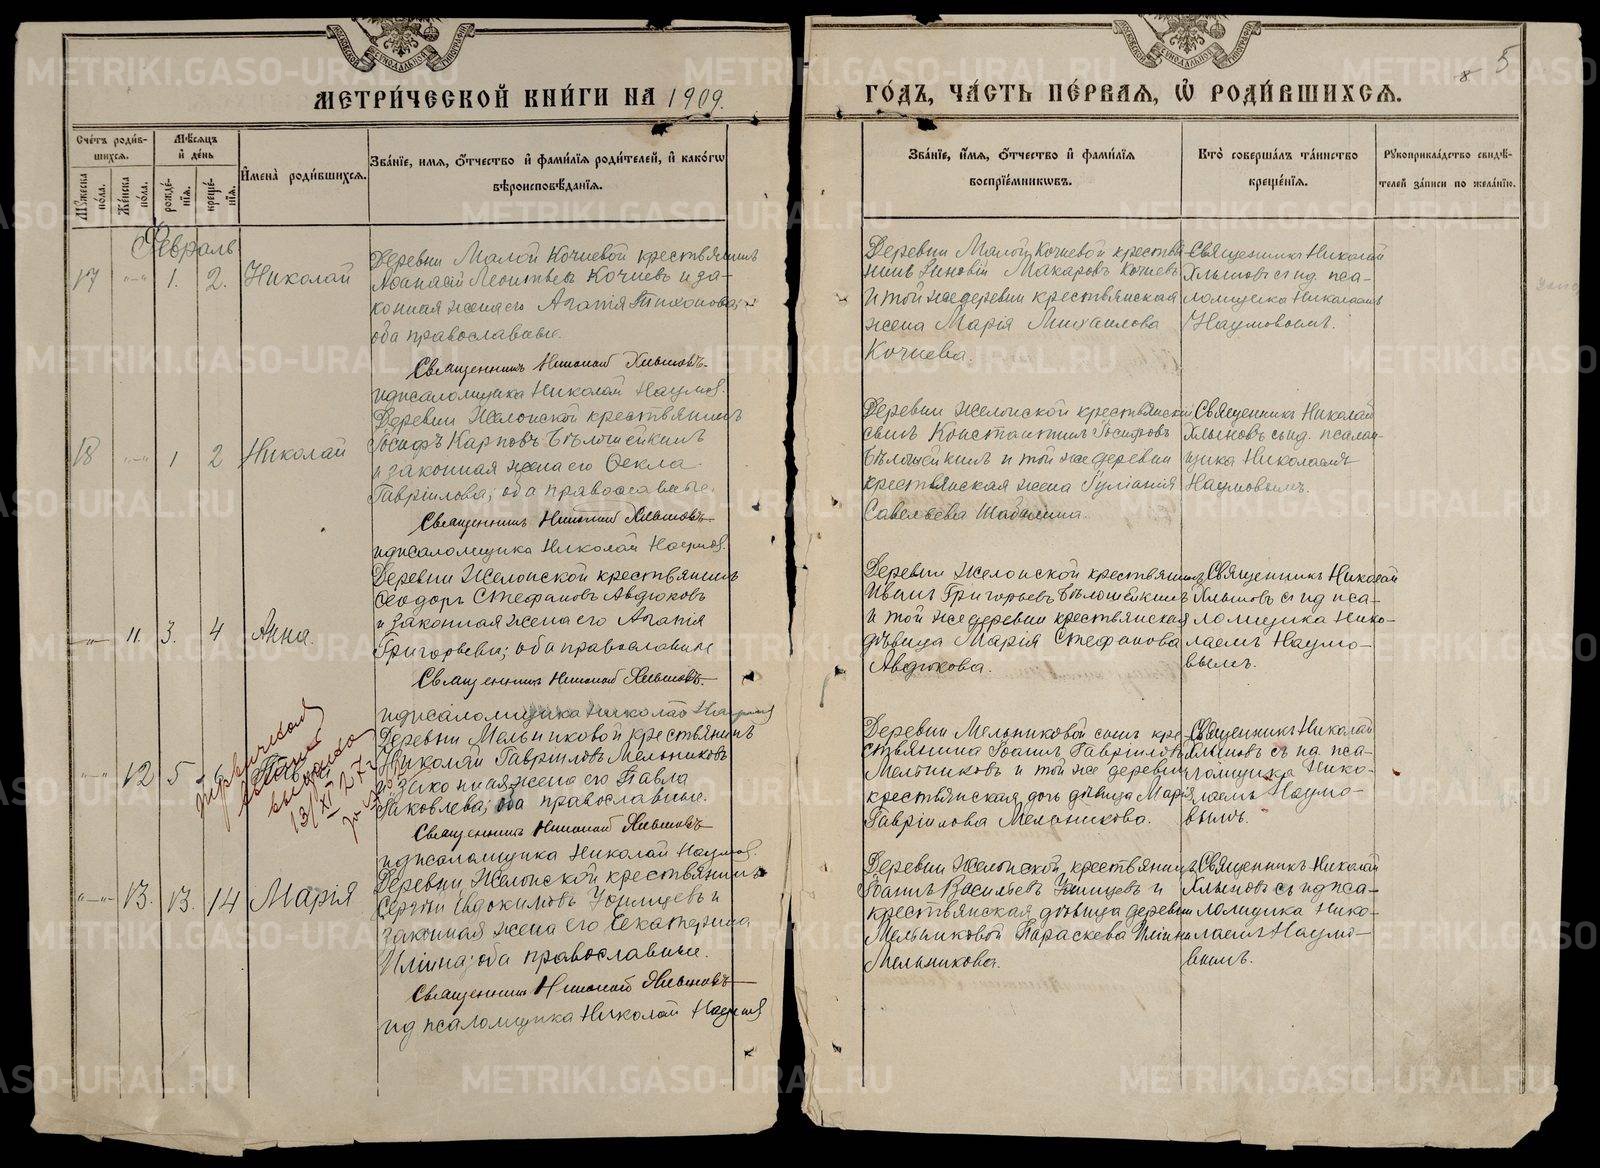 МЕТРИ́ЧЕСКОЙ КНИ́ГИ НА 1909.
ГО́ДЪ, ЧА́СТЬ ПЕ́РВАЯ, Ѡ РОДИ́ВШИХСЯ.
5
Сче́тъ роди́в-
шихся.
Мѣ́сяцъ
и҆ де́нь
Му́жеска
по́ла.
Же́нска
по́ла.
рожде́-
нїя.
креще́-
нїя.
И҆мена̀ роди́вшихся.
Зва́нїе, и҆мя, о҆́тчество и҆ фами́лїя роди́телей, и҆ како́гѡ
вѣроисповѣ́данїя.
Зва́нїе, и҆́мя, о҆́тчество и҆ фами́лїя
воспрїе́мникѡвъ.
Кто̀ соверша́лъ та́инство
креще́нїя.
Рꙋкоприкла́дство свидѣ́-
телей за́писи по жела́нїю.
Февраль
17
1.
2.
Николай
Деревни Малой Кочневой крестьянинъ
Афанасій Леонтьевъ Кочневъ и за-
конная жена его Агапія Тихонова;
оба православные.
Священникъ Николай Хлыновъ.
и д псаломщика Николай Наумов.
Деревни Малой Кочневой крестья-
нинъ Зиновій Макаровъ Кочневъ
и той же деревни крестьянская
жена Марія Михаилова
Кочнева.
Священникъ Николай
Хлыновъ съ и д пса-
ломщика Николаемъ
Наумовымъ.
18
1
2
Николай
Деревни Желонской крестьянинъ
Іосифъ Карповъ Бѣлошейкинъ
и законная жена его Ѳекла
Гавріилова; оба православные.
Священникъ Николай Хлыновъ
и д псаломщика Николай Наумов.
Деревни Желонской крестьянскій
сынъ Константинъ Іосифовъ
Бѣлошейкинъ и той же деревни
крестьянская жена Іуліанія
Савельева Шабалина.
Священникъ Николай
Хлыновъ съ и д. псалом-
щика Николаемъ
Наумовымъ.
11.
3.
4
Анна.
Деревни Желонской крестьянинъ
Ѳеодоръ Стефановъ Авдюковъ
и законная жена его Агапія
Григорьева; оба православные
Священникъ Николай Хлыновъ.
и д псаломщика Николай Наумов
Деревни Желонской крестьянинъ
Иванъ Григорьевъ Бѣлошейкинъ
и той же деревни крестьянская
дѣвица Марія Стефанова
Авдюкова.
Священникъ Николай
Хлыновъ съ и д пса-
ломщика Нико-
лаемъ Наумо-
вымъ.
12
5
13/XI 27 г
Деревни Мельниковой крестьянинъ
Николай Гавріиловъ Мельниковъ
и законная жена его Павла
Яковлева; оба православные.
Священникъ Николай Хлыновъ
и д псаломщика Николай Наумов.
Деревни Мельниковой сынъ кре-
стьянина Іоаннъ Гавріиловъ
Мельниковъ и той же деревни
крестьянская дочь дѣвица Марія
Гавріилова Мельникова.
Священникъ Николай
Хлыновъ съ и д пса-
ломщика Нико-
лаемъ Наумо-
вымъ.
13.
13.
14
Марія
Деревни Желонской крестьянинъ
Сергій Евдокимовъ
законная жена его Екатерина
Иліина; оба православные.
Священникъ Николай Хлыновъ
и д псаломщика Николай Наумов
Деревни Желонской крестьянинъ
Іоаннъ Васильевъ и
крестьянская дѣвица деревни
Мельниковой Параскева Иліина
Мельникова.
Священникъ Николай
Хлыновъ съ и д пса-
ломщика Нико-
лаемъ Наумо-
вымъ.
METRIKI.GASO-URAL.RU